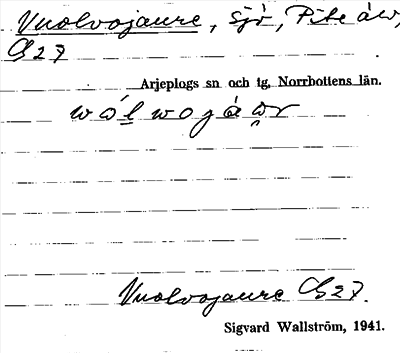 Vuolvojaure, sjö, Pite älv,
C27
Arjeplogs sn och tg, Norrbottens län.
wó̱lwojáo̯r
Vuolvojaure C27.
Sigvard Wallström, 1941.